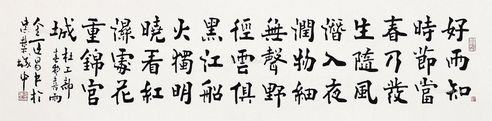 好雨知
時節當
春乃發
生隨風
潛入夜
潤物細
無聲野
徑雲俱
黑江船
火獨明
曉看紅
濕處花
重錦官
城
杜工部
春夜喜雨
書於
中